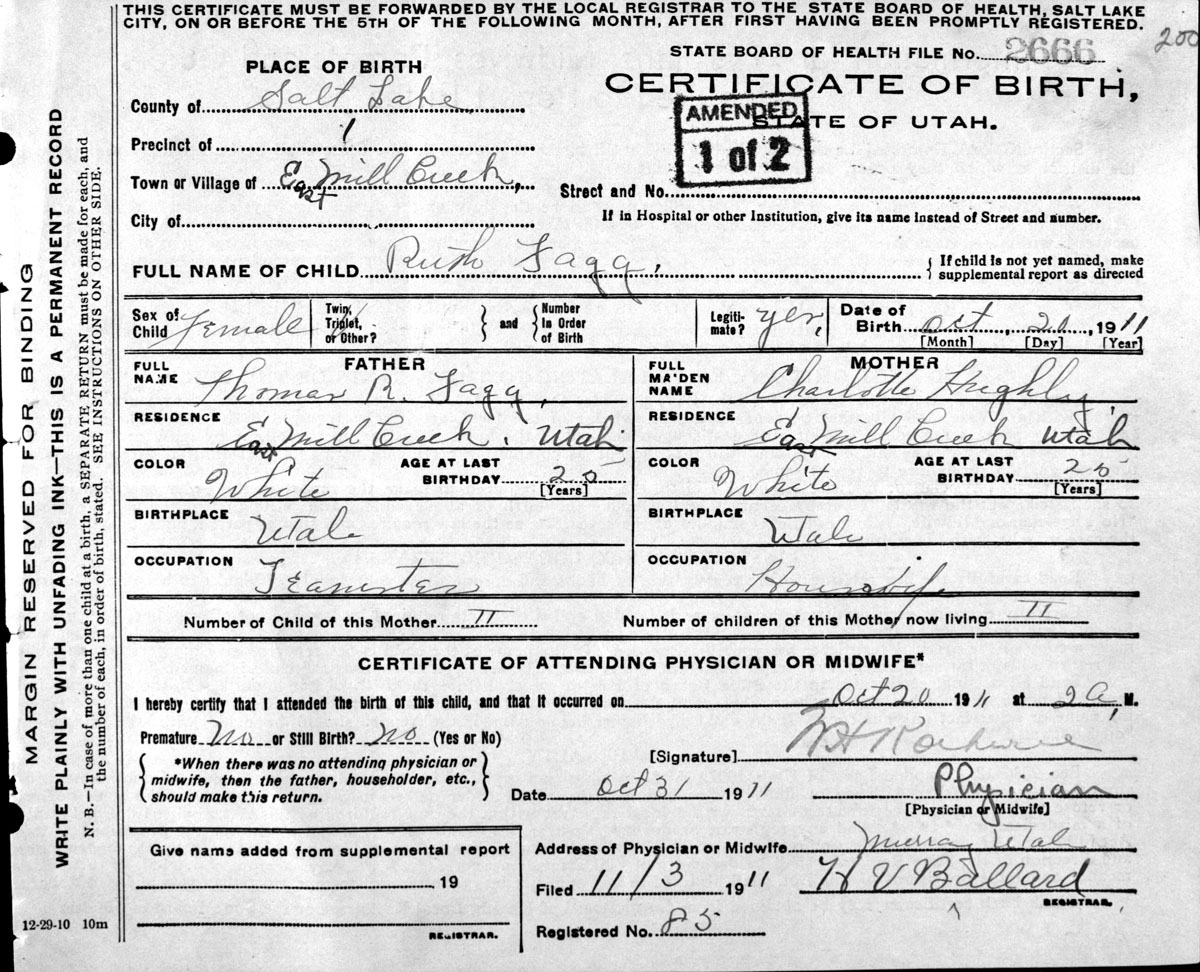 THIS CERTIFICATE MUST BE FORWARDED BY THE LOCAL REGISTRAR TO THE STATE BOARD OF HEALTH, SALT LAKE
CITY, ON OR BEFORE THE 5TH OF THE FOLLOWING MONTH, AFTER FIRST HAVING BEEN PROMPTLY REGISTERED.
200
STATE BOARD OF HEALTH FILE No. 2666
PLACE OF BIRTH
CERTIFICATE OF BIRTH,
County of Salt Lake
AMENDED
STATE OF UTAH.
1 of 2
Precinct of 1
Town or Village of East Mill Creek,
Street and No.
City of
If in Hospital or other Institution, give its name instead of Street and number.
FULL NAME OF CHILD Ruth Fagg,
If child is not yet named, make
supplemental report as directed
Sex of Child Female
Twin, Triplet, or Other?
and
Number In Order of Birth
Legiti-mate? yes,
Date of Birth Oct, 20, 1911
[Month] [Day] [Year]
FATHER
MOTHER
FULL NAME Thomas R. Fagg,
FULL MAIDEN NAME Charlotte
RESIDENCE East Mill Creek, Utah
RESIDENCE East Mill Creek Utah
COLOR White
AGE AT LAST BIRTHDAY 25
[Years]
COLOR White
AGE AT LAST BIRTHDAY 25
[Years]
BIRTHPLACE Utah
BIRTHPLACE Utah
OCCUPATION Teamster
OCCUPATION Housewife
Number of Child of this Mother II
Number of children of this Mother now living II
CERTIFICATE OF ATTENDING PHYSICIAN OR MIDWIFE*
I hereby certify that I attended the birth of this child, and that it occurred on Oct 20 1911 at 2 A, M.
Premature No or Still Birth? No (Yes or No)
[Signature] W H
*When there was no attending physician or
midwife, then the father, householder, etc.,
should make this return.
Date Oct 31 1911
Physician
[Physician or Midwife]
Give name added from supplemental report
19
REGISTRAR.
Address of Physician or Midwife Murray Utah
Filed 11/3 1911 H V Ballard
REGISTRAR.
Registered No. 85
12-29-10 10m
MARGIN RESERVED FOR BINDING
WRITE PLAINLY WITH UNFADING INK—THIS IS A PERMANENT RECORD
N. B.—In case of more than one child at a birth, a SEPARATE RETURN must be made for each, and
the number of each, in order of birth, stated. SEE INSTRUCTIONS ON OTHER SIDE.